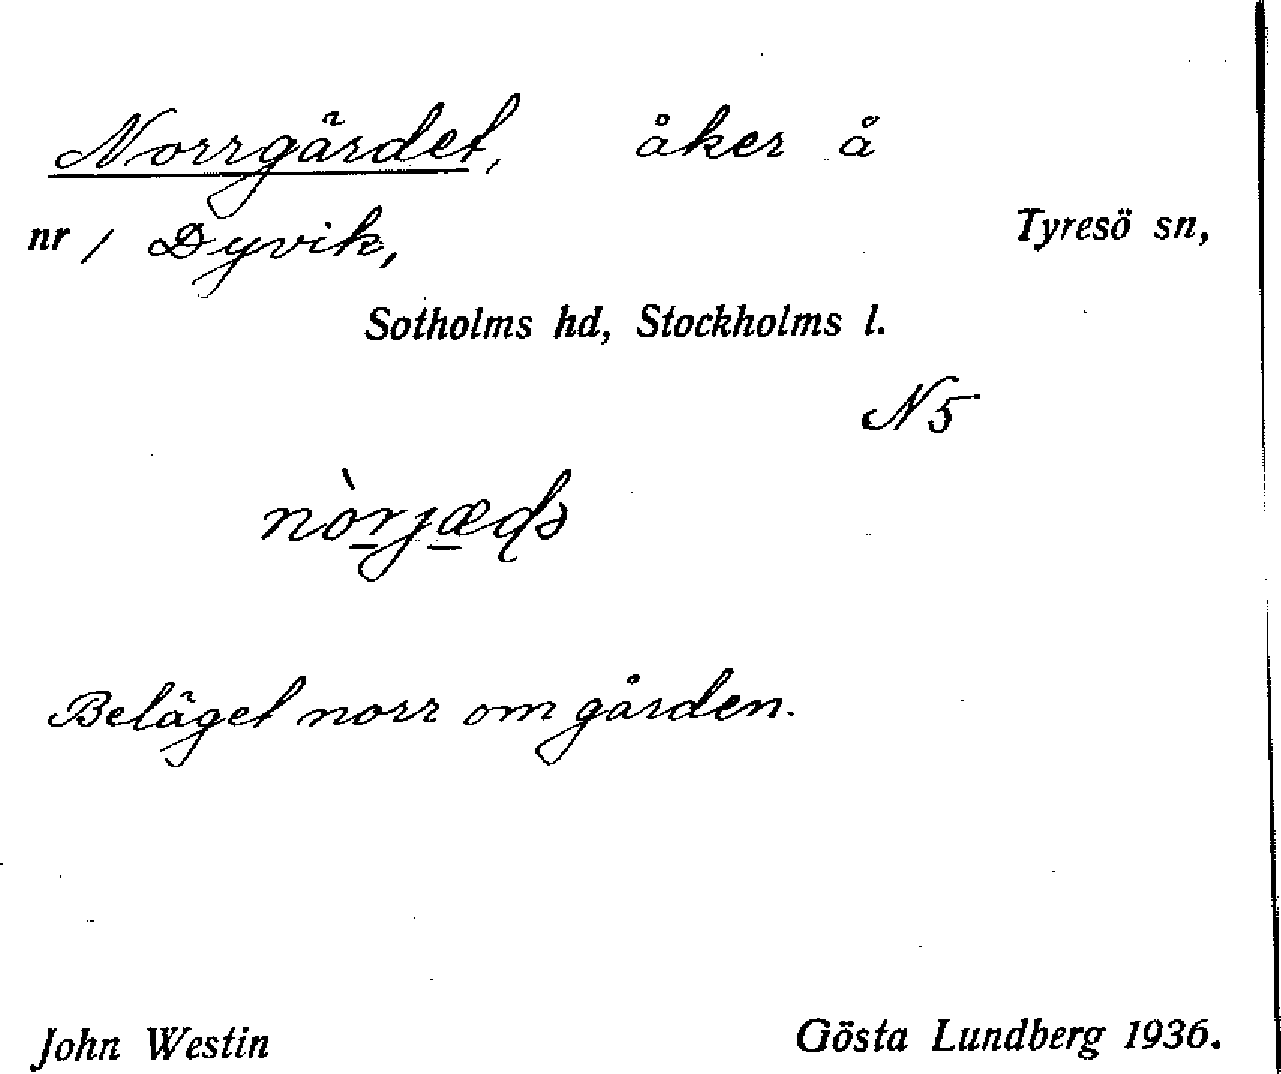 Norrgärdet, åker å
nr 1 Dyvik, Tyresö sn,
Sotholms hd, Stockholms l.
N 5
Beläget norr om gården.
John Westin Gösta Lundberg 1936.